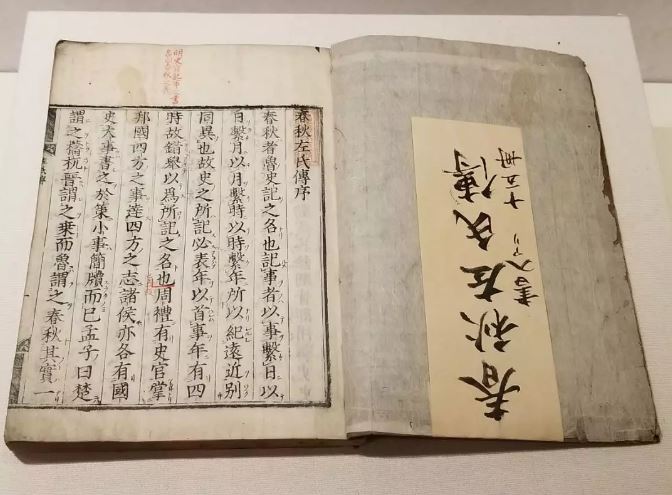 春秋左氏傳
書入アリ 十五冊
春秋左氏傳序
春秋者魯史記之名也記事者以事繫日以
日繫月以月繫時以時繫年所以紀遠近別
同異也故史之所記必表年以首事年有四
時故錯舉以爲所記之名也周禮有史官掌
邦國四方之事達四方之志諸侯亦各有國
史大事書之於策小事簡牘而已孟子曰楚
謂之檮杌晉謂之乗而魯謂之春秋其實一